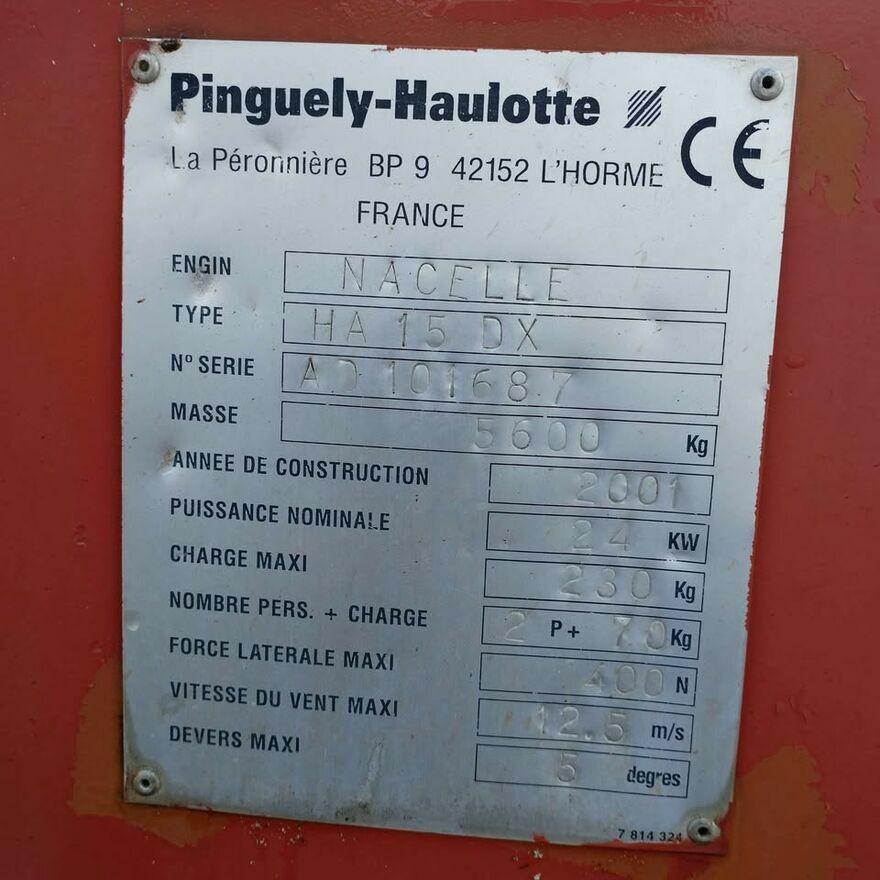 Pinguely-Haulotte
La Péronnière BP 9 42152 L'HORME
FRANCE
CE
ENGIN NACELLE
TYPE HA 15 DX
N° SERIE AD 101687
MASSE 5600 Kg
ANNEE DE CONSTRUCTION 2001
PUISSANCE NOMINALE 24 KW
CHARGE MAXI 230 Kg
NOMBRE PERS. + CHARGE 2 P+ 70 Kg
FORCE LATERALE MAXI 400 N
VITESSE DU VENT MAXI 12.5 m/s
DEVERS MAXI 5 degres
7 814 324